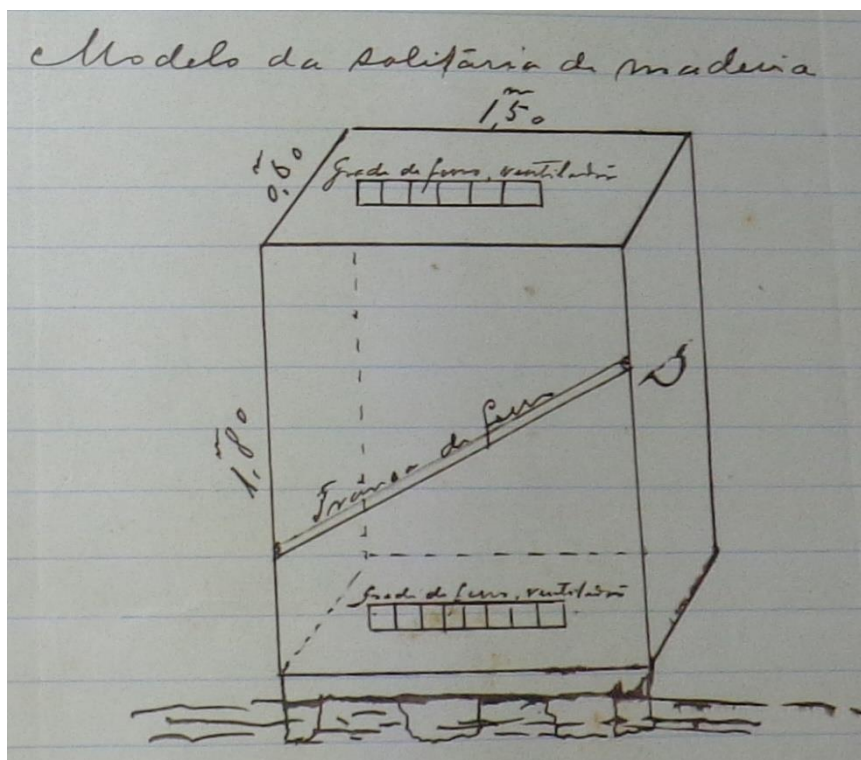 Modelo da solitária de madeira
1,50 m
0,60
Grade de ferro, ventiladôr
1,80 m
Tranca de ferro
Grade de ferro, ventiladôr